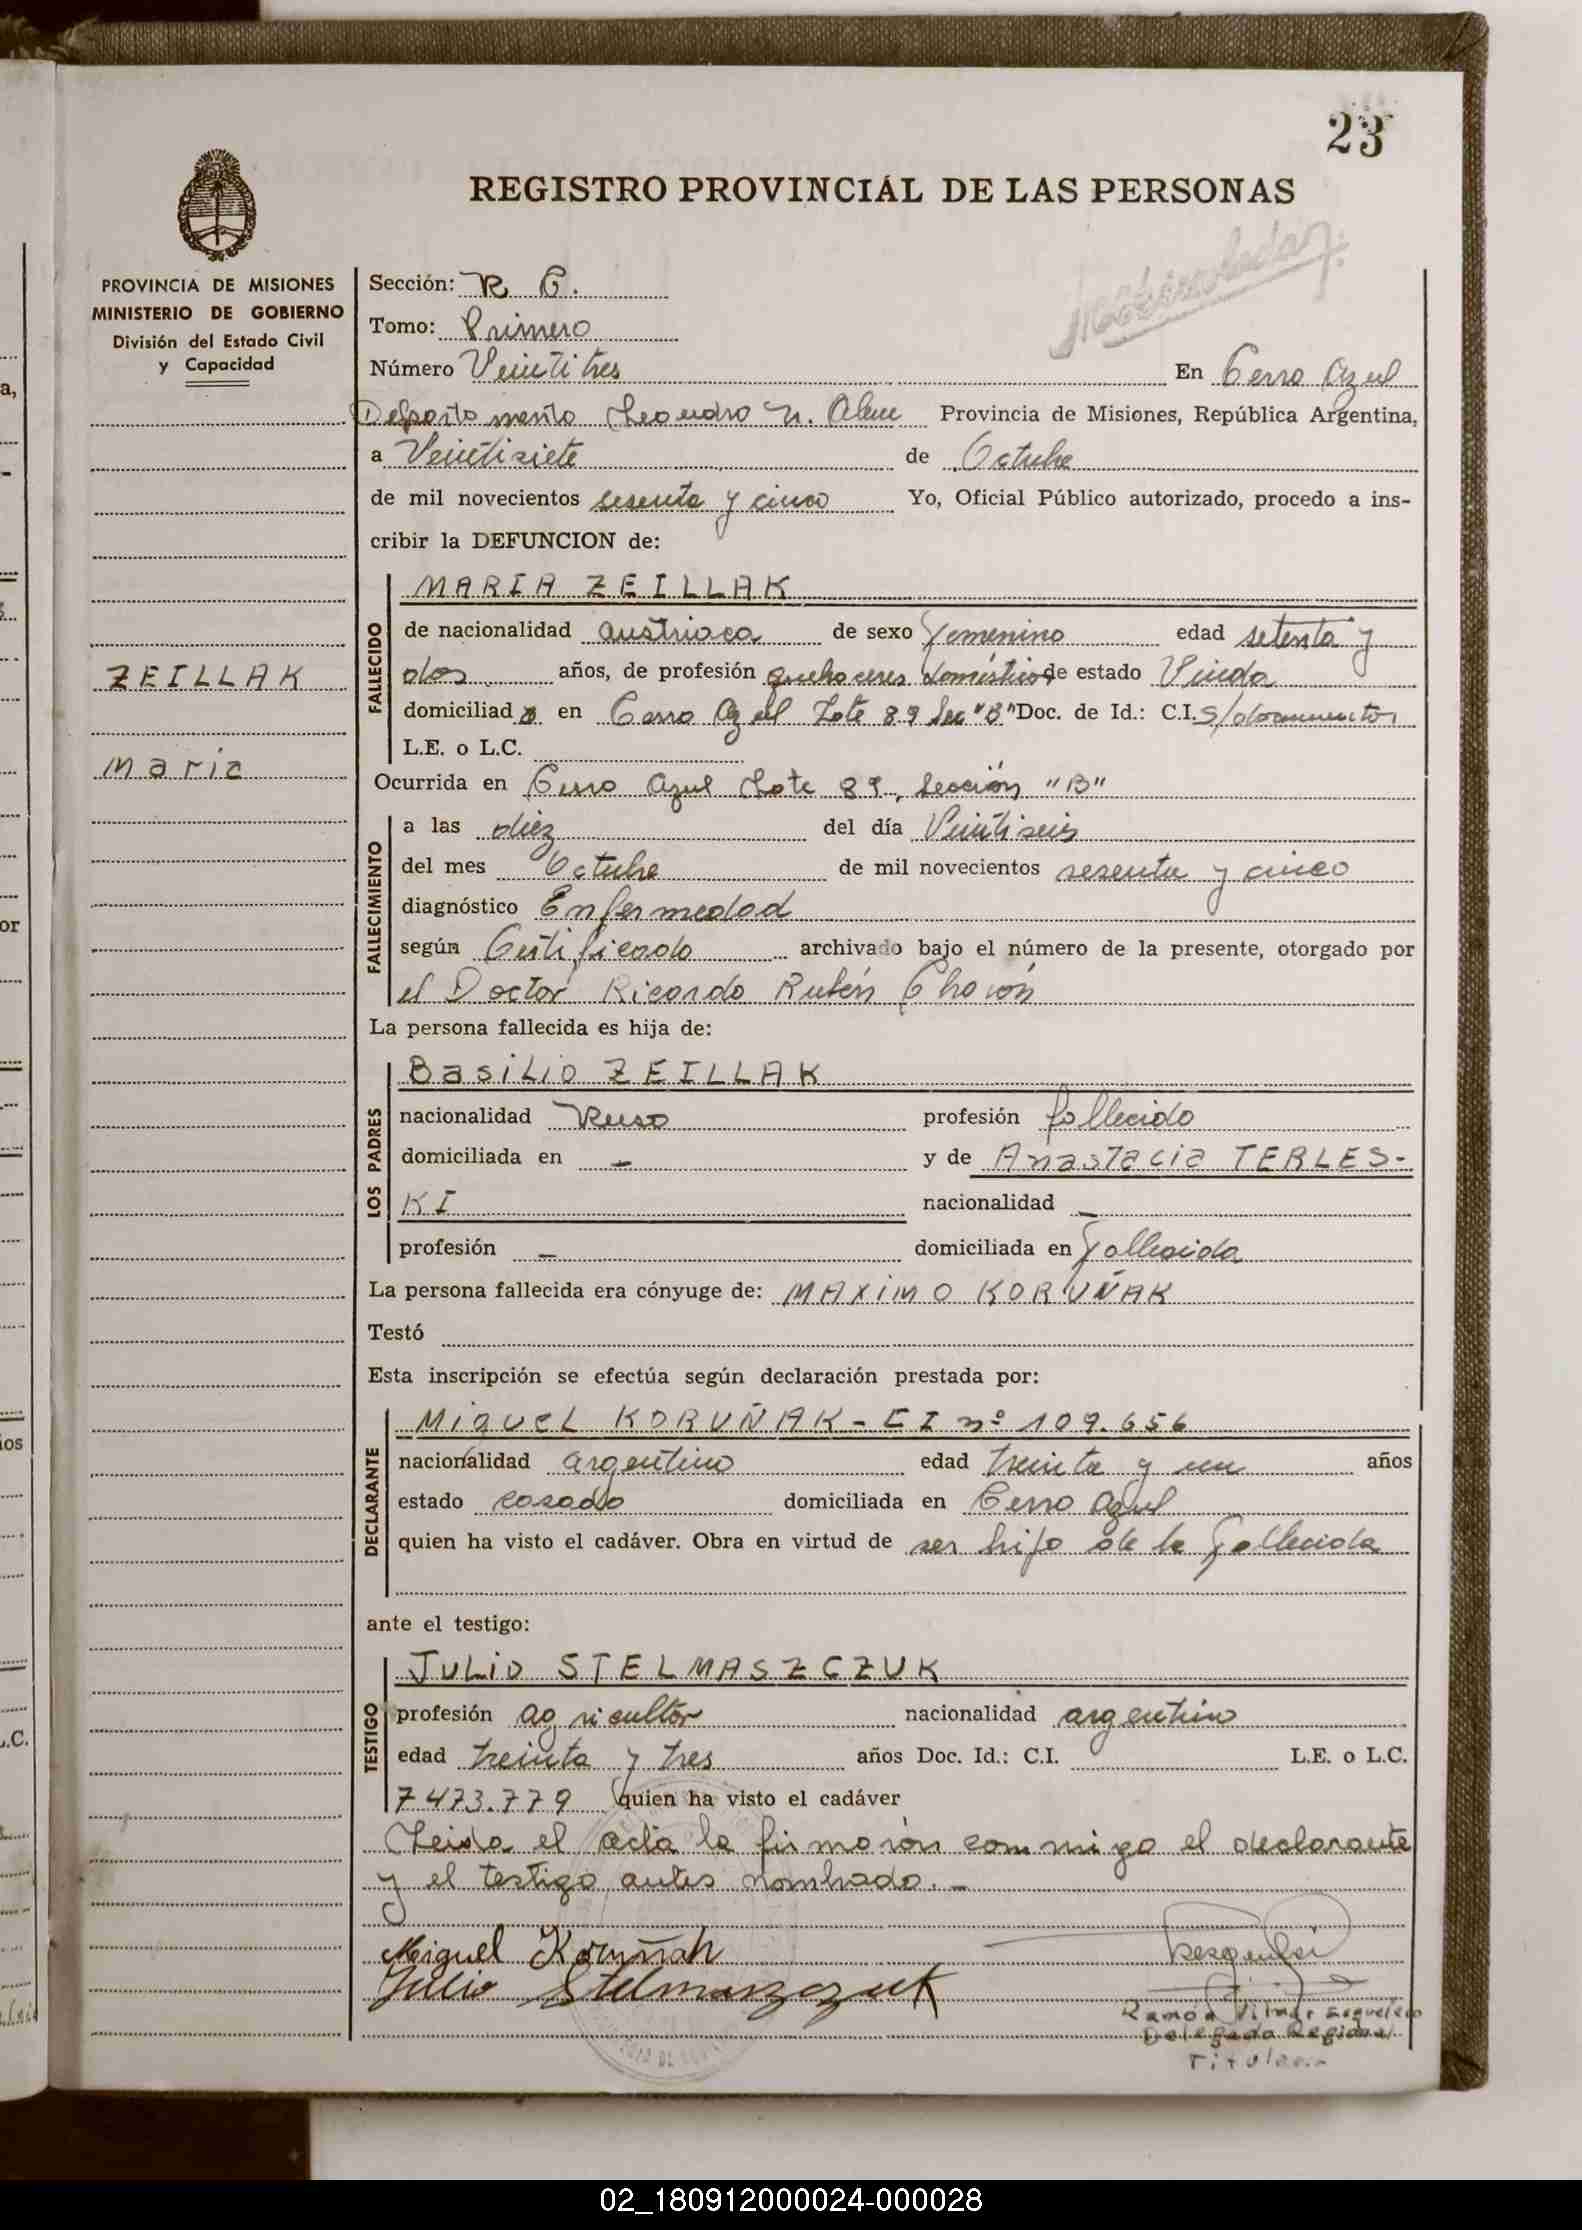 23
REGISTRO PROVINCIAL DE LAS PERSONAS
PROVINCIA DE MISIONES
MINISTERIO DE GOBIERNO
División del Estado Civil
y Capacidad
ZEILLAK
Maria
Sección: R C.
Tomo: Primero
Número Veintitres En Cerro Azul
Departamento Leandro N. Alem Provincia de Misiones, República Argentina,
a Veintisiete de Octubre
de mil novecientos sesenta y cinco Yo, Oficial Público autorizado, procedo a ins-
cribir la DEFUNCION de:
FALLECIDO
MARIA ZEILLAK
de nacionalidad austriaca de sexo femenino edad setenta y
dos años, de profesión quehaceres domésticos de estado Viuda
domiciliada en Cerro Azul Lote 89 Sec "B" Doc. de Id.: C.I. S/documentos
L.E. o L.C.
Ocurrida en Cerro Azul Lote 89, Sección "B"
FALLECIMIENTO
a las diez del día Veintiseis
del mes Octubre de mil novecientos sesenta y cinco
diagnóstico Enfermedad
según Certificado archivado bajo el número de la presente, otorgado por
el Doctor Ricardo Rubén Chacón
La persona fallecida es hija de:
LOS PADRES
Basilio ZEILLAK
nacionalidad Ruso profesión fallecido
domiciliada en - y de Anastacia TERLES-
KI nacionalidad -
profesión - domiciliada en fallecida
La persona fallecida era cónyuge de: MAXIMO KORUÑAK
Testó
Esta inscripción se efectúa según declaración prestada por:
DECLARANTE
Miguel KORUÑAK - CI nº 109.656
nacionalidad argentino edad treinta y un años
estado casado domiciliada en Cerro Azul
quien ha visto el cadáver. Obra en virtud de ser hijo de la fallecida
ante el testigo:
TESTIGO
Julio STELMASZCZUK
profesión agricultor nacionalidad argentino
edad treinta y tres años Doc. Id.: C.I. L.E. o L.C.
7473.779 quien ha visto el cadáver
Leida el acta la firmarón conmigo el declarante
y el testigo antes nombrado. -
Miguel Koruñak
Julio Stelmaszczuk
Ramón
Delegado Regional
Titular
02_180912000024-000028